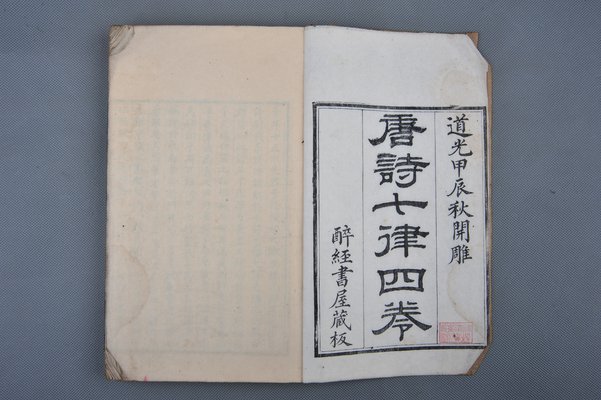 道光甲辰秋開雕
唐詩七律四卷
醉經書屋藏板